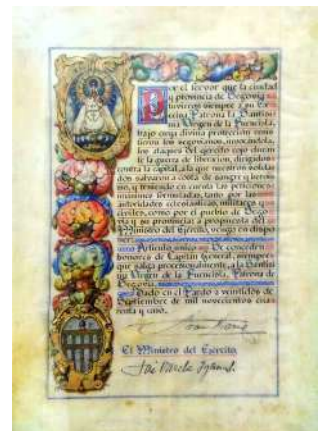 Por el fervor que la ciudad
y provincia de Segovia
tuvieron siempre a su Ex
celsa Patrona la Santísi
ma Virgen de la Fuencisla,
bajo cuya divina protección resis
tieron los segovianos, invocándola,
los ataques del ejército rojo duran
te la guerra de liberación, dirigidos
contra la capital, a la que nuestros solda
dos salvaron a costa de sangre y herois
mo, y teniendo en cuenta las peticiones
unánimes formuladas, tanto por las
autoridades eclesiásticas, militares y
civiles, como por el pueblo de Sego
via y su provincia; a propuesta del
Ministro del Ejército, vengo en dispo
ner:
Artículo único — De conceder
honores de Capitán General, siempre
que salga procesionalmente, a la Santísi
ma Virgen de la Fuencisla, Patrona de
Segovia.
Dado en El Pardo a veintidós de
Septiembre de mil novecientos cua
renta y uno.
El Ministro del Ejército